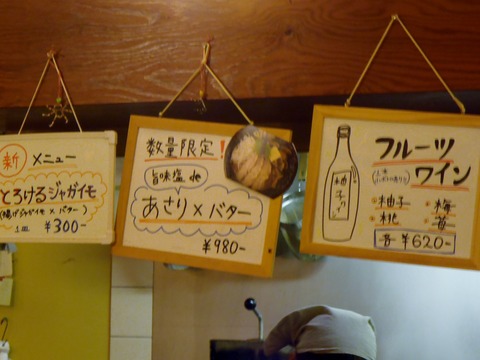 新 メニュー
とろける ジャガイモ
(揚げジャガイモ × バター)
一皿 ¥300-
数量限定!
旨味塩de
あさり × バター
¥980-
柚子ワイン
フルーツ
ワイン
・柚子 ・梅
・桃 ・苺
各 ¥620-